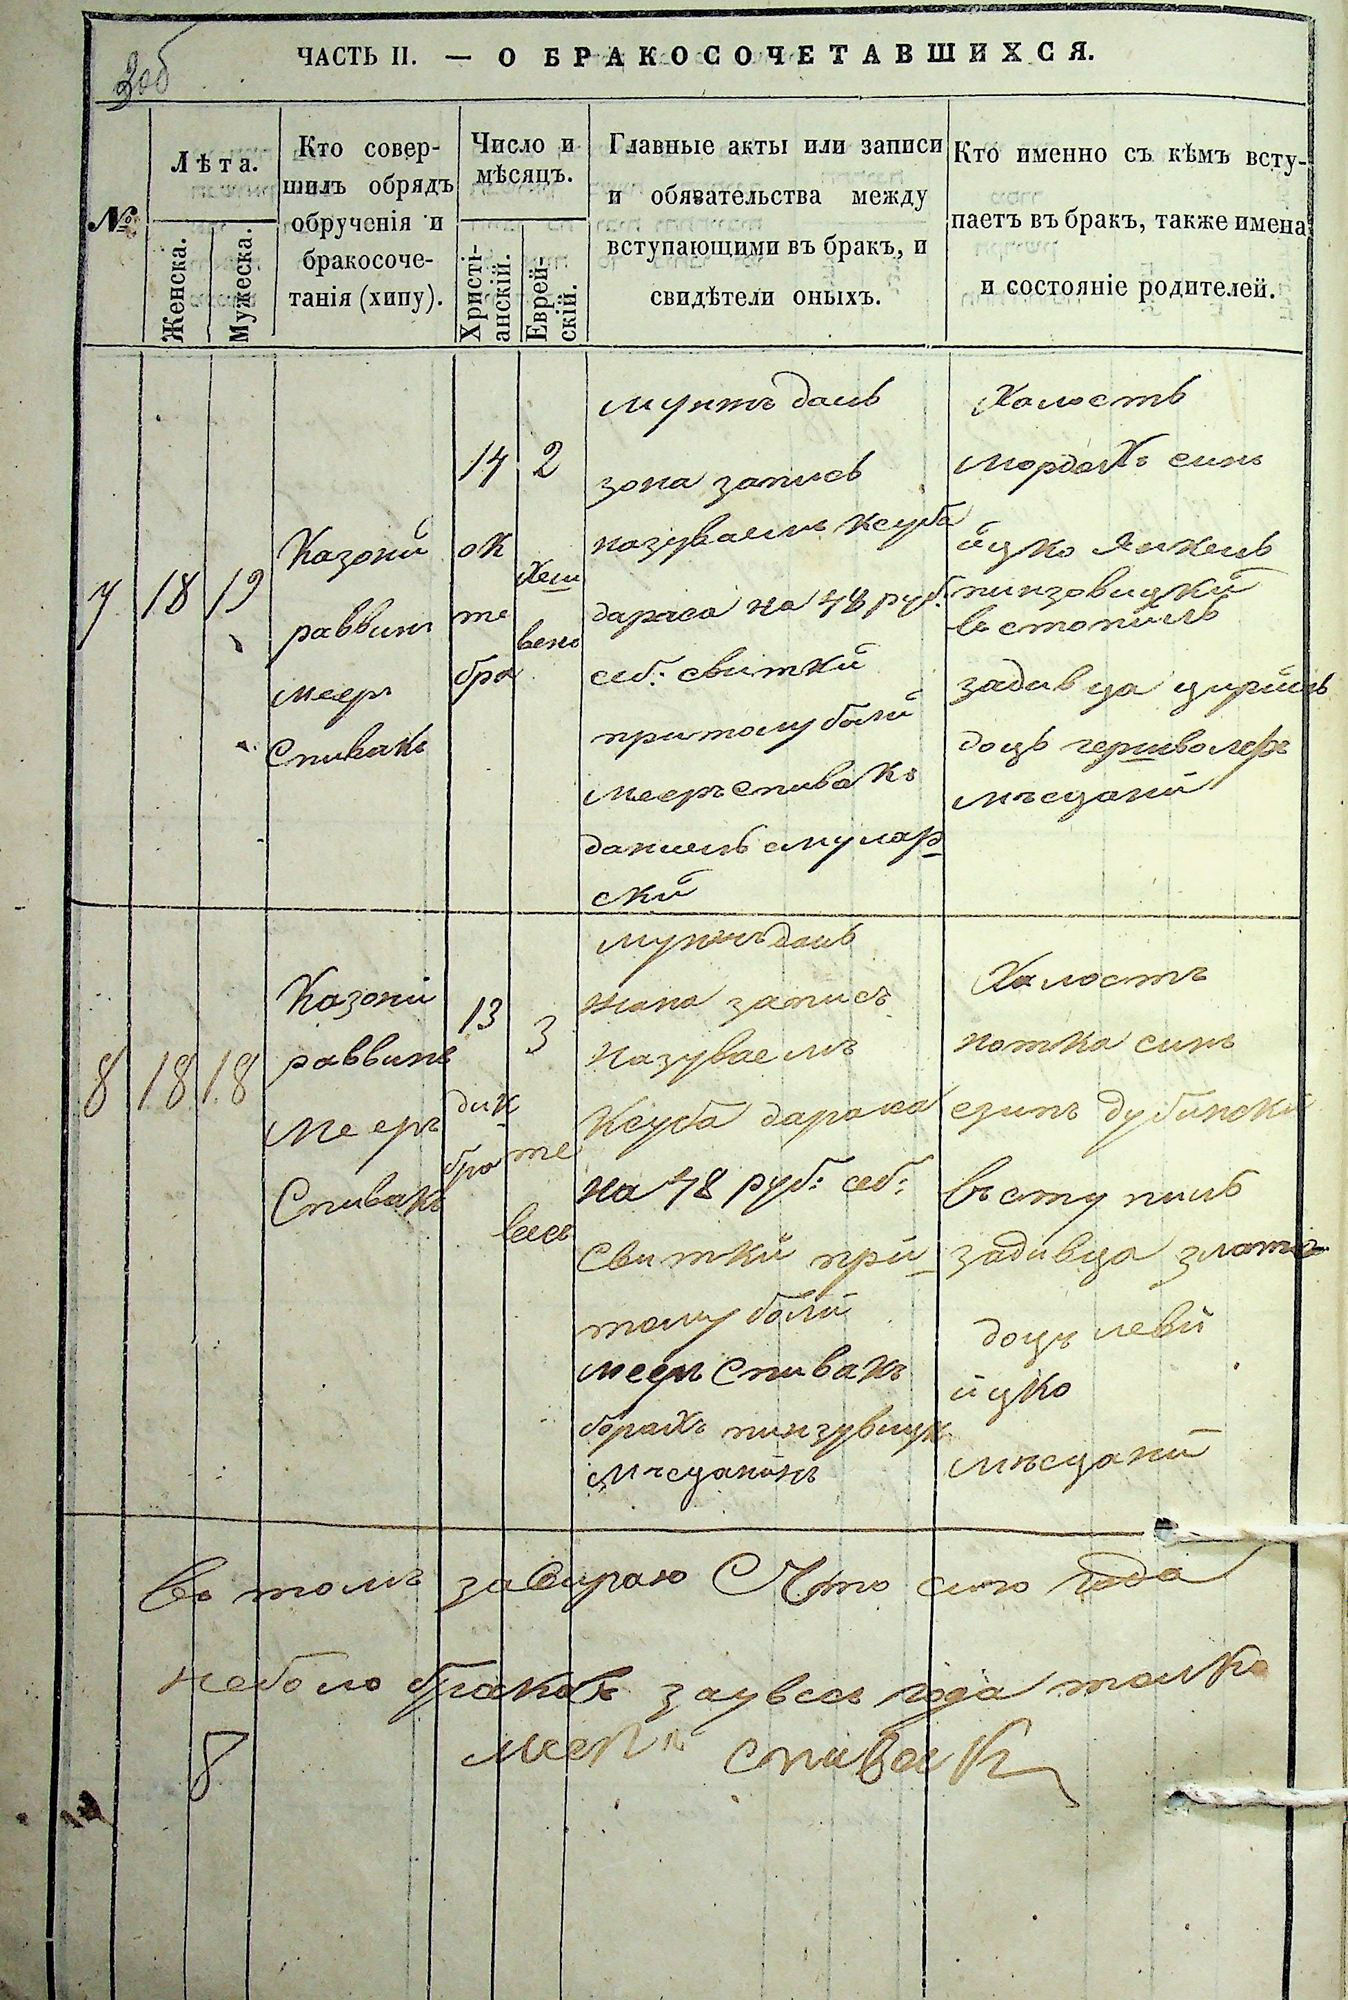 3об
ЧАСТЬ II. — О БРАКОСОЧЕТАВШИХСЯ.
№
Лѣта.
Женска.
Мужеска.
Кто совер-
шилъ обрядъ
обрученія и
бракосоче-
танія (хипу).
Число и
мѣсяцъ.
Христі-
анскій.
Еврей-
скій.
Главные акты или записи
и обязательства между
вступающими въ бракъ, и
свидѣтели оныхъ.
Кто именно съ кѣмъ всту-
паетъ въ бракъ, также имена
и состояніе родителей.
7
18
19
Казоній
раввинъ
мееръ
Спивакъ
14
ок
те
бра
2
Хеш
вень
мужъ даль
зона запись
называемъ ксуба
дараса на 48 руб:
себ: свиткй
притому болй
мееръ спивакъ
даниель смуляр
скй
Холость
мордахъ синъ
ицко Янкель
пинзовицкй
встопиль
задивца
доць
мѣсцанй
8
18
18
Казоні
раввинъ
Мееръ
Спивакъ
13
дик
бра
3
те
весь
мужъ даль
жона записъ
называемъ
Ксуба дараса
на 48 руб: себ:
Свиткй при
тому болй
мееръ Спивакъ
борахъ пинзувицк
мѣсцанинъ
Халостъ
нотка синъ
дубинскй
вступиль
задивца злота
доцъ левй
ицко
мѣсцанй
Въ томъ Что сего года
неболо браковъ заувесь года толко
8
меер спивак